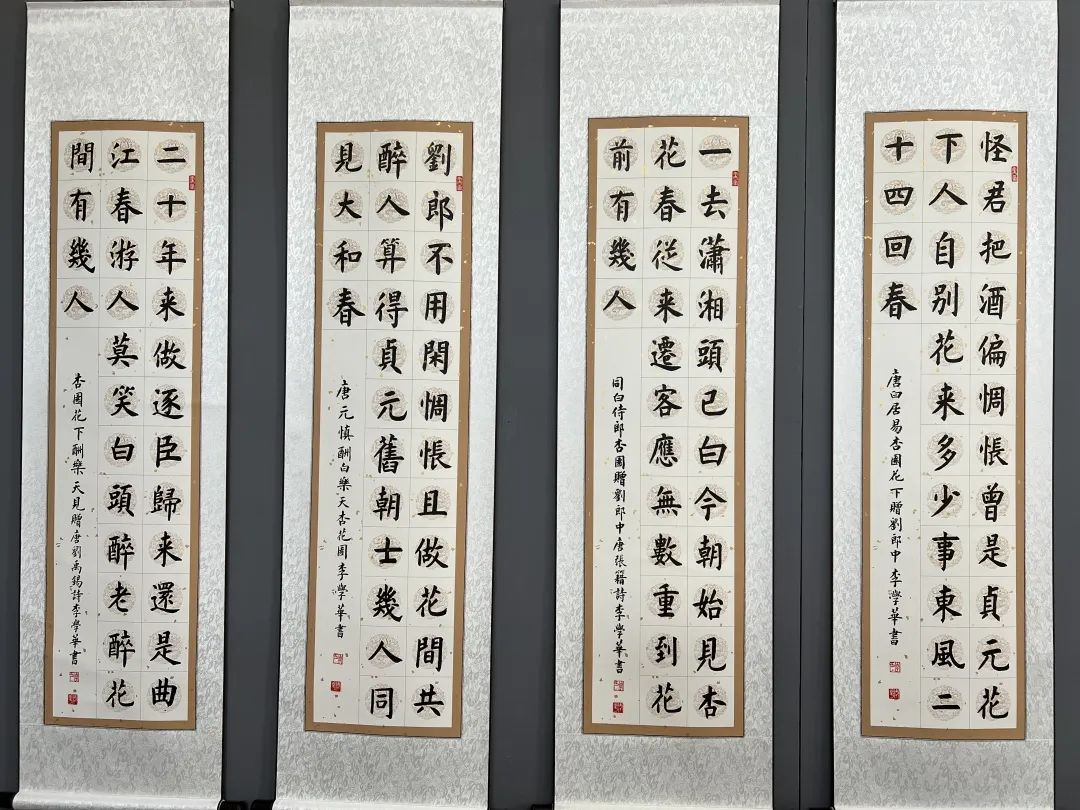 怪君把酒偏惆悵曾是貞元花
下人自别花来多少事東風二
十四回春
唐白居易杏園花下贈劉郎中 李學華書
一去瀟湘頭已白今朝始見杏
花春從来遷客應無數重到花
前有幾人
同白侍郎杏園贈劉郎中唐張籍詩李學華書
劉郎不用閑惆悵且做花間共
醉人算得貞元舊朝士幾人同
見大和春
唐元慎酬白樂天杏花園李學華書
二十年来做逐臣歸来還是曲
江春游人莫笑白頭醉老醉花
間有幾人
杏園花下酬樂天見贈唐劉禹錫詩李學華書